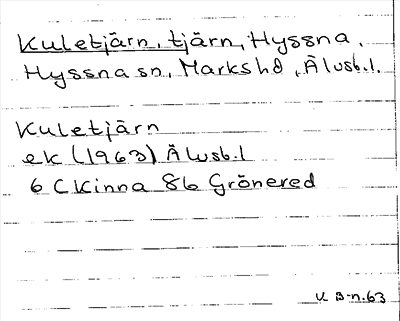 Kuletjärn, tjärn, Hyssna,
Hyssna sn, Marks hd, Älvsb.l.
Kuletjärn
ek (1963) Älvsb.l
6 C Kinna 8b Grönered
U B-n.63